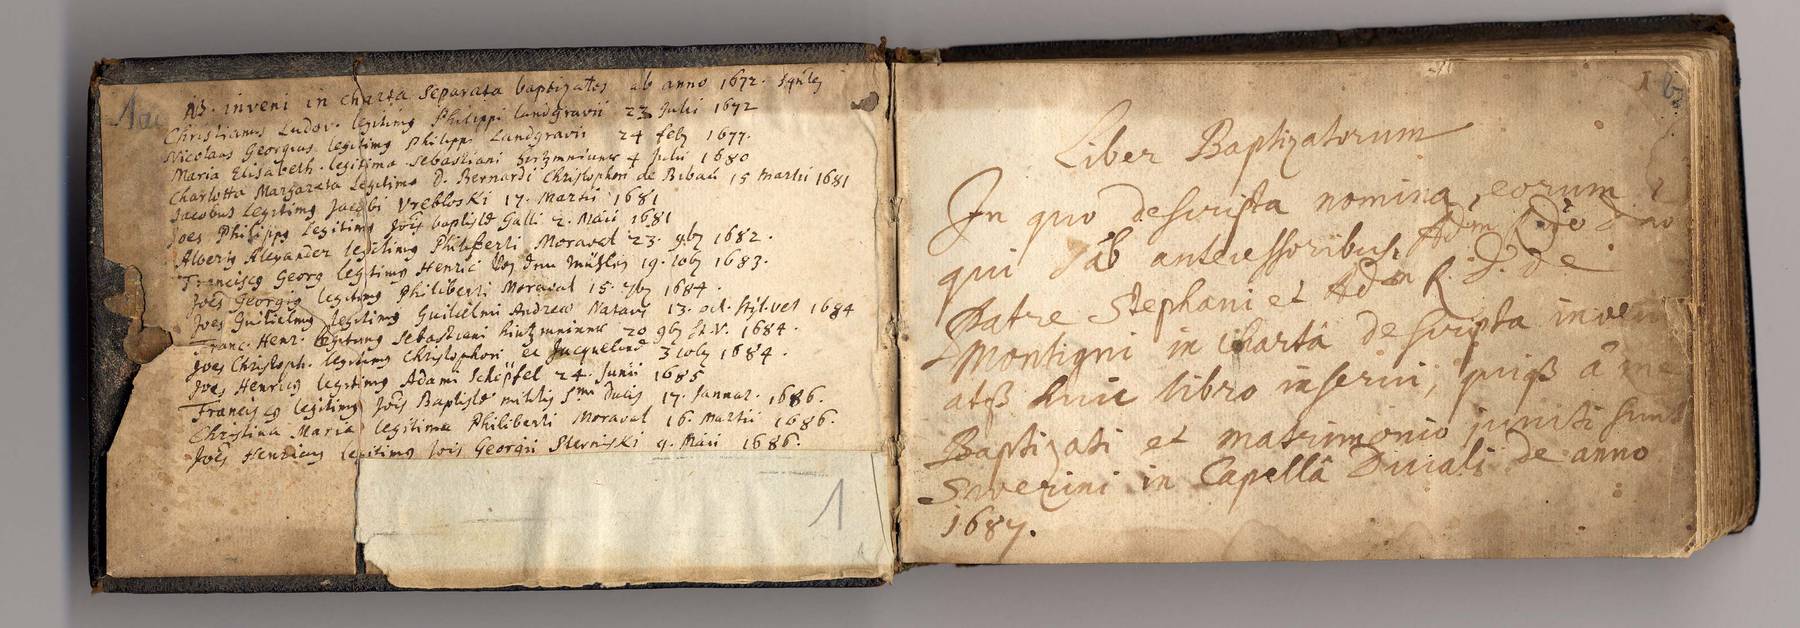 1a
NB. inveni in charta separata baptizatos ab anno 1672. sqntes
Christianus Ludov. legitimg Philippi landgravii 23 Julii 1672
Nicolaus Georgius legitimg Philippi Landgravii 24 feb 1677.
Maria Elisabeth. legitima Sebastiani 4 Julii 1680
Charlotta Margareta Legitima D. Bernardi Christophori de 15 Martii 1681
Jacobus Legitimg Jacobi Vrebloski 17. Martii 1681
Joes Philippg Legitimg Jois baptistæ Galli 2. Maii 1681
Alexander legitimg Philiberti Moraval 23. 9by 1682.
Franciscg Georg legitimg Henric 19. 1683.
Joes Georgig legitimg Philiberti Moraval 15. 7by 1684.
Joes Guilielmg legitimg Guilielmi Andreæ 13. oct. styl. vet 1684
Franc. Henr. legitimg Sebastiani 20 9by St. V. 1684.
Joes Christoph. legitimg Christophori et Jacquelinæ 3 1684.
Joes Henricg legitimg Adami Schipfel 24. Junii 1685
Franciscg legitimg Jois Baptistæ militis Smi Ducis 17. Januar. 1686.
Christina Maria legitima Philiberti Moraval 16. Martii 1686.
Joes Henricg legitimg Jois Georgii Sterniski 9. Maii 1686.
1
1
Liber Baptizatorum
In quo descripta nomina eorum
qui ab antecessoribus Adm Rdo Dno
Patre Stephani et Adm R. P. de
Montigni in chartâ descripta inveni
atqß huic libro inserui, quiqß â me
Baptizati et matrimonio juncti sunt
Swerini in Capellâ Ducali de anno
1687.